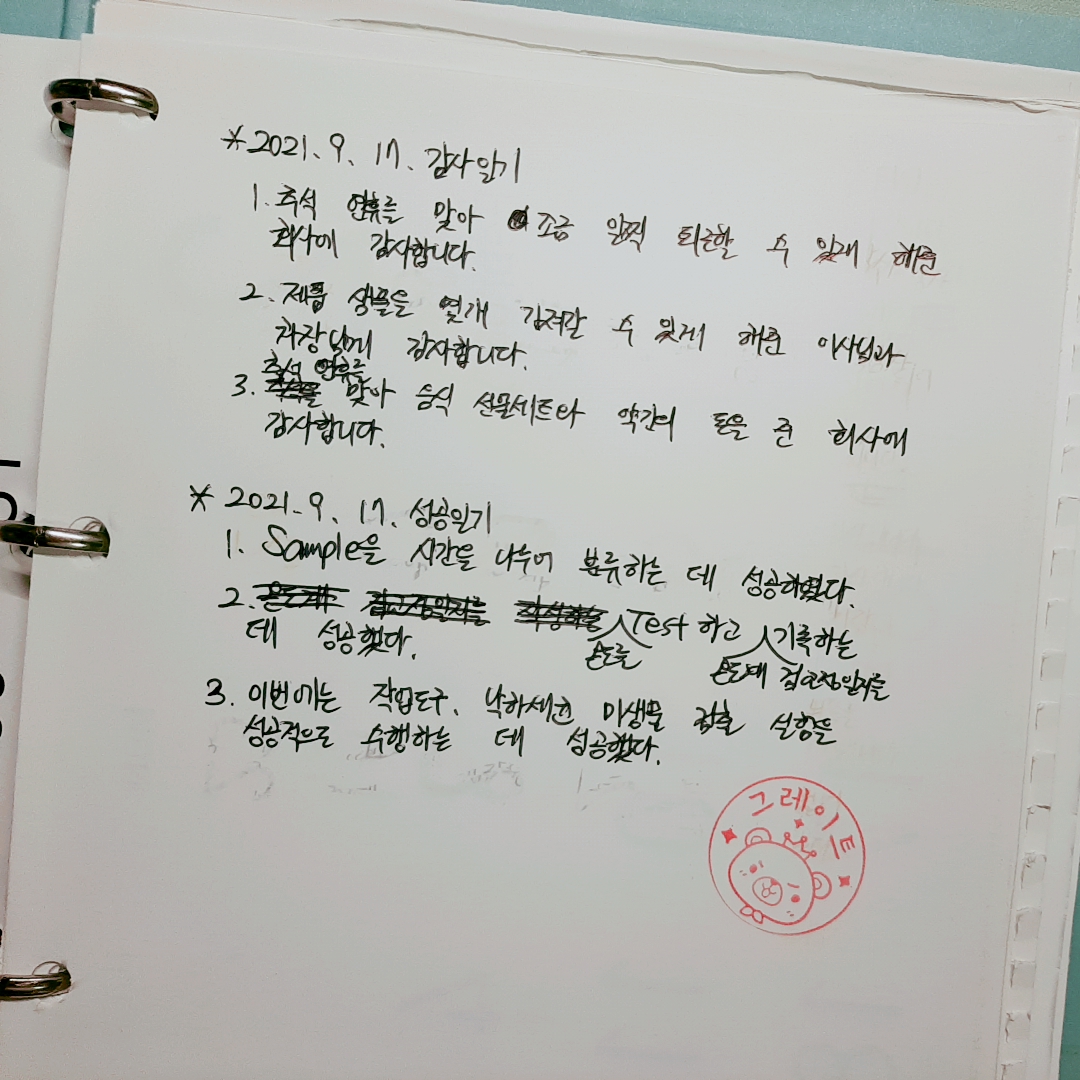 * 2021. 9. 17. 감사일기
1. 추석 연휴를 맞아 조금 일찍 퇴근할 수 있게 해준
회사에 감사합니다.
2. 제품 샘플을 몇개 가져갈 수 있게 해준 이사님과
과장님께 감사합니다.
추석 연휴를
3. 맞아 음식 선물세트와 약간의 돈을 준 회사에
감사합니다.
* 2021. 9. 17. 성공일기
1. Sample을 시간을 나누어 분류하는 데 성공하였다.
2. Test 하고 기록하는
데 성공했다. 온도를 온도계 검교정일지를
3. 이번에는 작업도구, 낙하세균 미생물 검출 실험을
성공적으로 수행하는 데 성공했다.
그레이트